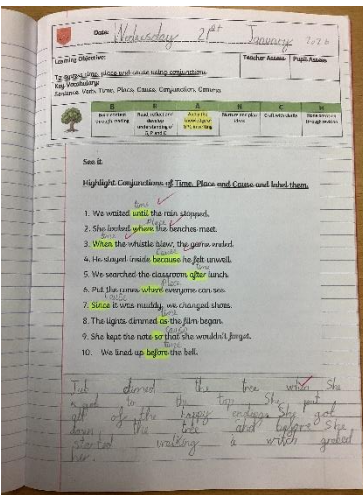 Date: Wednesday 21st January 2026
Learning Objective: Teacher Assess Pupil Assess
To express time, place and cause using conjunctions
Key Vocabulary:
Sentence, Verb, Time, Place, Cause, Conjunction, Comma
B R A N C H
See it
Highlight Conjunctions of Time, Place and Cause and label them.
time
1. We waited until the rain stopped.
place
2. She looked where the benches meet.
time
3. When the whistle blew, the game ended.
cause
4. He stayed inside because he felt unwell.
time
5. We searched the classroom after lunch.
place
6. Put the cones where everyone can see.
cause
7. Since it was muddy, we changed shoes.
time
8. The lights dimmed as the film began.
cause
9. She kept the note so that she wouldn't forget.
time
10. We lined up before the bell.
the tree when She
to the top She put
all of the happy endings She got
down the tree and before She
started walking a witch
her.